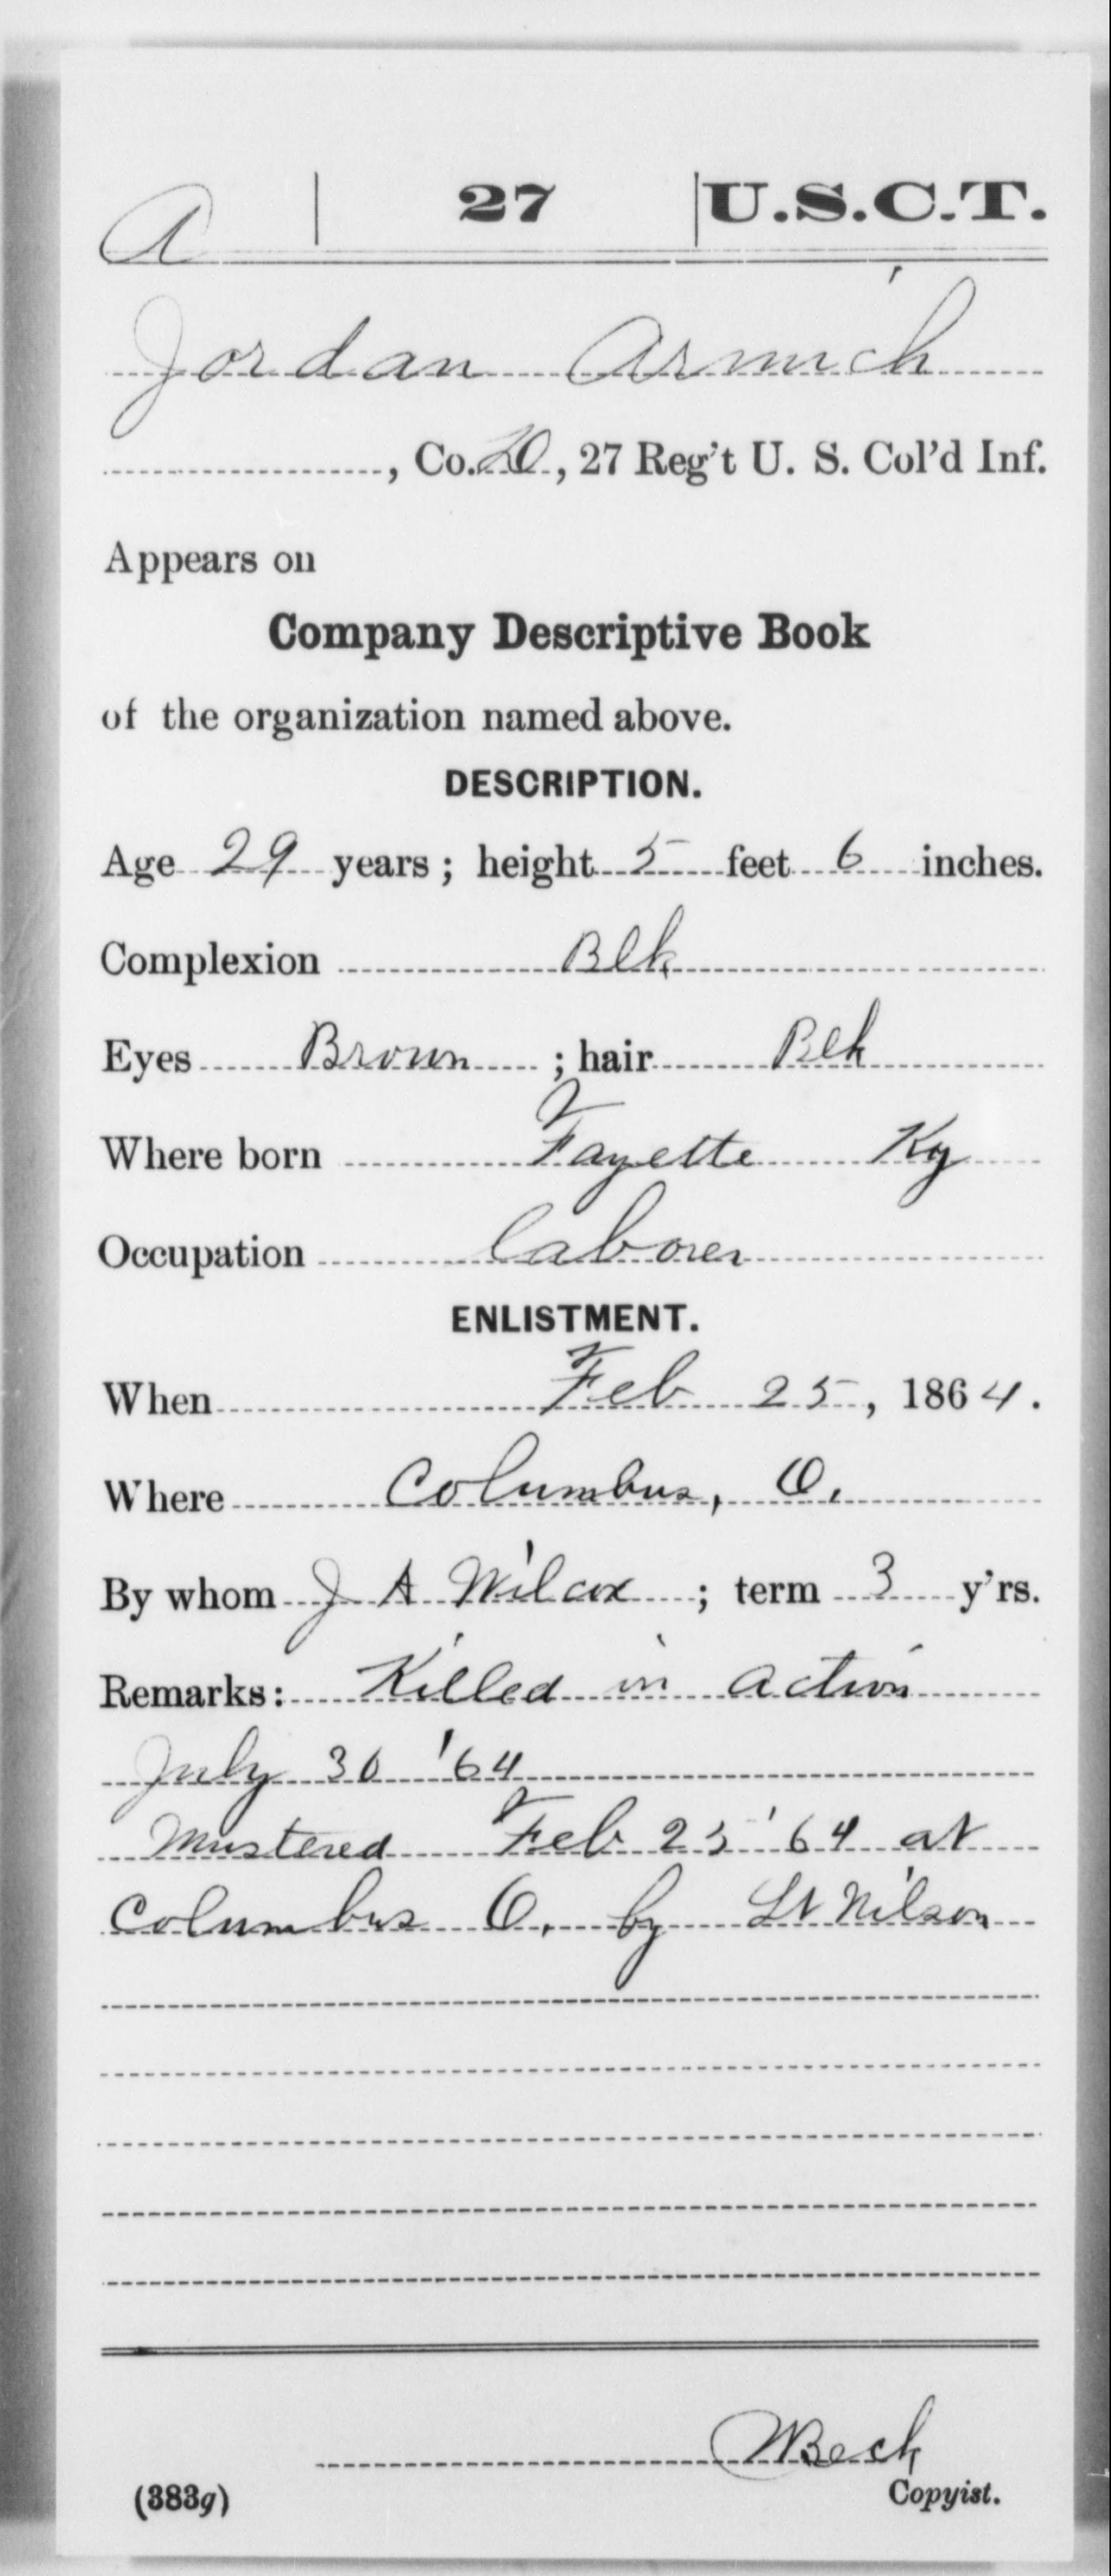 A | 27 | U.S.C.T.
Jordan Armich
, Co. D, 27 Reg't U. S. Col'd Inf.
Appears on
Company Descriptive Book
of the organization named above.
DESCRIPTION.
Age 29 years; height 5 feet 6 inches.
Complexion Blk
Eyes Brown; hair Blk
Where born Fayette Ky
Occupation laborer
ENLISTMENT.
When Feb 25, 1864.
Where Columbus, O.
By whom J A Wilcox; term 3 y'rs.
Remarks: Killed in action
July 30 '64
Mustered Feb 25 '64 at
Columbus O. by Lt Nilson
Beck
(383g) Copyist.